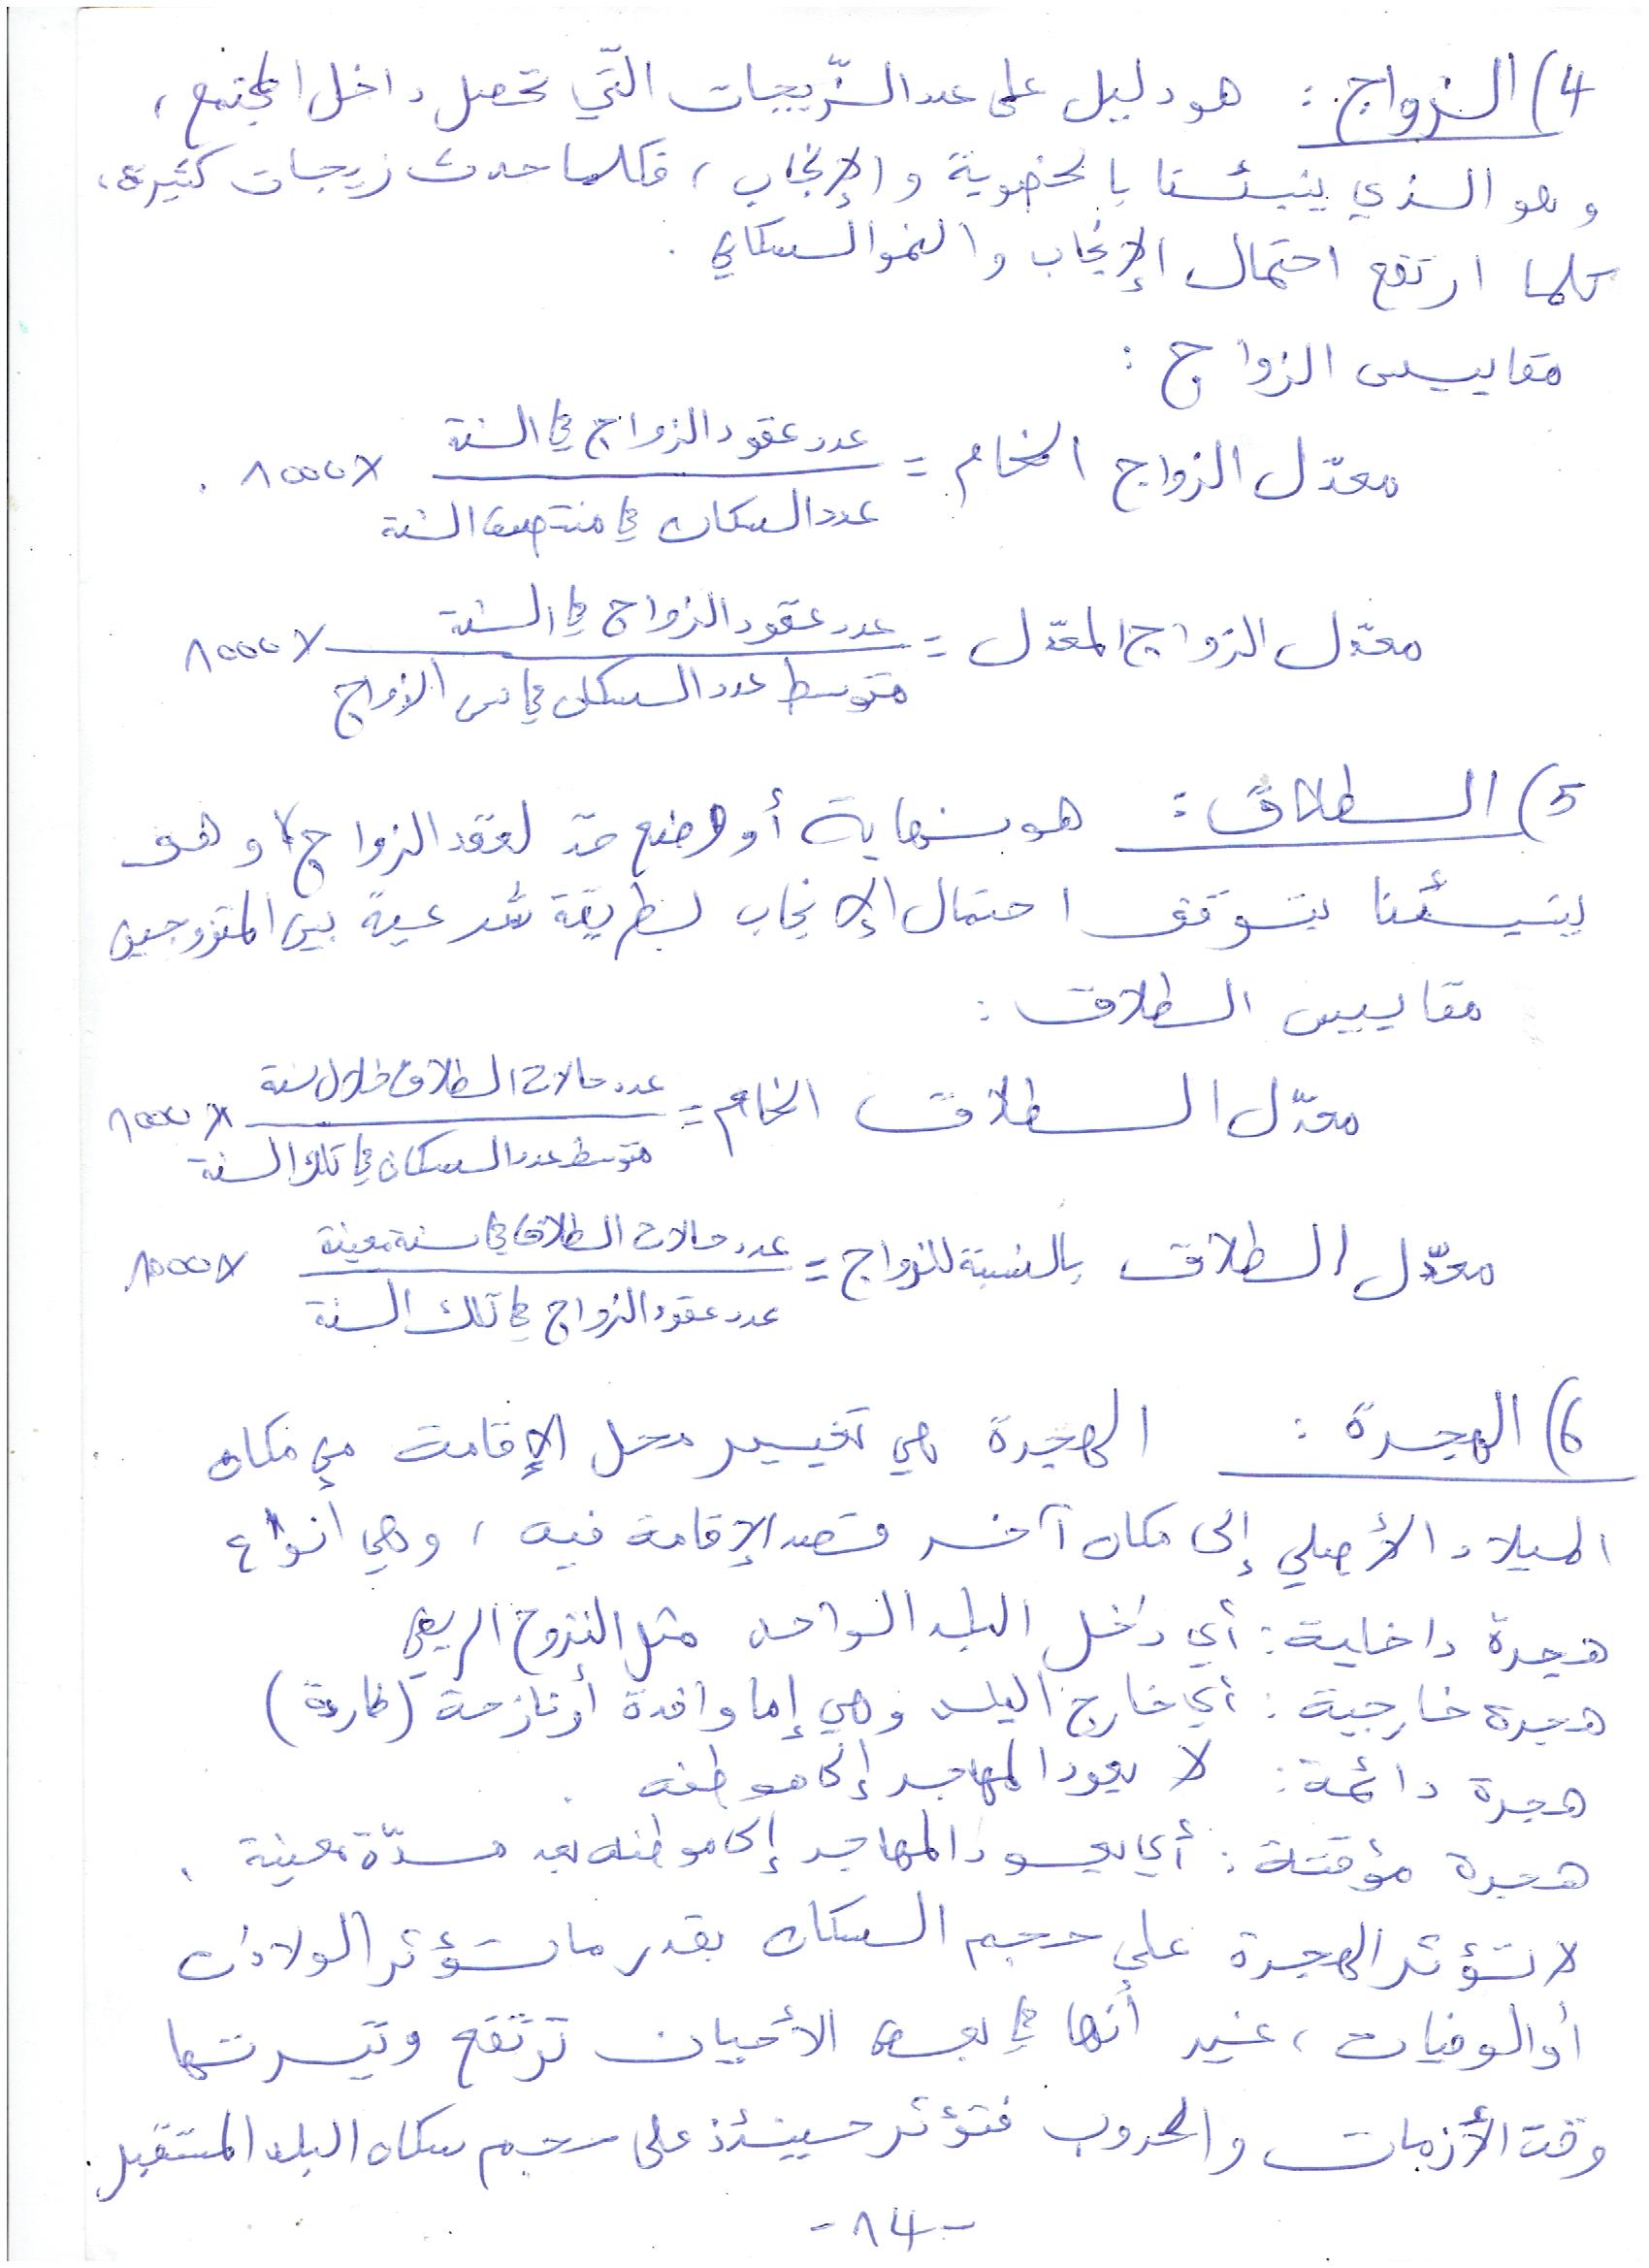 4) الزواج : هو دليل على عدد الزّيجات التّي تحصل داخل المجتمع ،
و هو الذي ينبئنا بالخصوبة و الإنجاب ، فكلما حدث زيجات كثيرة ،
كلما ارتفع احتمال الإنجاب و النمو السكاني .
مقاييس الزواج :
معدّل الزواج الخام = عدد عقود الزواج في السنة
عدد السكان في منتصف السنة
× 1000 .
معدّل الزواج المعدّل = عدد عقود الزواج في السنة
متوسط عدد السكان في سن الزواج
× 1000
5) الطلاق : هو نهاية أو وضع حدّ لعقد الزواج ، و هو
ينبئنا بتوقف احتمال الإنجاب بطريقة شرعية بين المتزوجين
مقاييس الطلاق :
معدّل الطلاق الخام = عدد حالات الطلاق خلال سنة
متوسط عدد السكان في تلك السنة
× 1000
معدّل الطلاق بالنسبة للزواج = عدد حالات الطلاق في سنة معينة
عدد عقود الزواج في تلك السنة
× 1000
6) الهجرة : الهجرة هي تغيير محل الإقامة من مكان
الميلاد الأصلي إلى مكان آخر قصد الإقامة فيه ، وهي أنواع
هجرة داخلية : أي داخل البلد الواحد مثل النزوح الريفي
هجرة خارجية : أي خارج البلد وهي إما وافدة أو نازحة (طاردة)
هجرة دائمة : لا يعود المهاجر إلى موطنه .
هجرة مؤقتة : أي يعود المهاجر إلى موطنه بعد مدّة معينة .
لا تؤثر الهجرة على حجم السكان بقدر ما تؤثر الولادات
أو الوفيات ، غير أنها في بعض الأحيان ترتفع وتيرتها
وقت الأزمات والحروب فتؤثر حينئذ على حجم سكان البلد المستقبل .
- 14 -